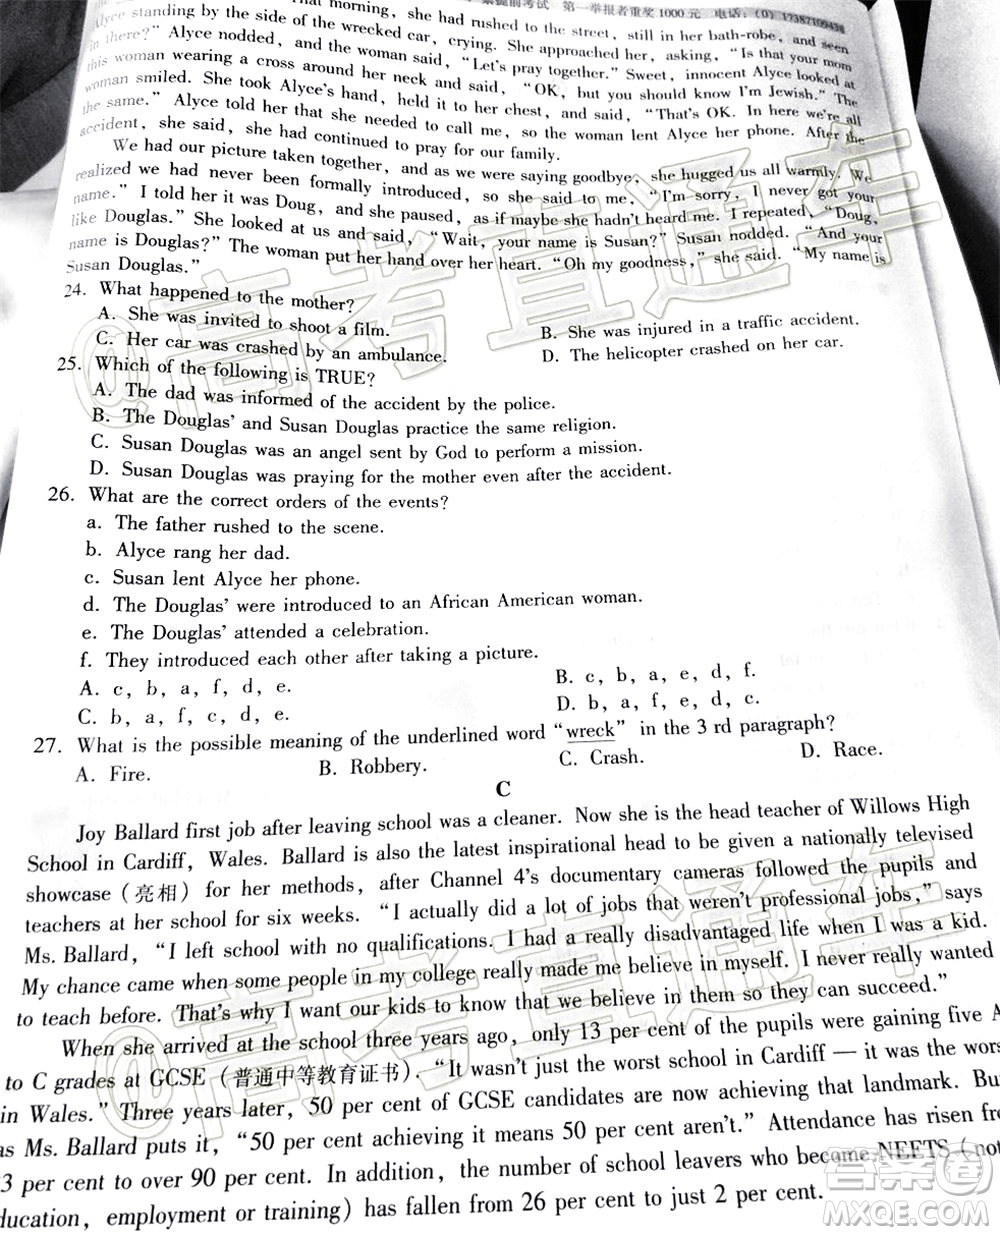 案提前考试 第一举报者重奖1000元 电话:(0)17387109438
That morning, she had rushed to the street, still in her bath-robe, and seen
Alyce standing by the side of the wrecked car, crying. She approached her, asking, “Is that your mom
in there?” Alyce nodded, and the woman said, “Let's pray together.” Sweet, innocent Alyce looked at
this woman wearing a cross around her neck and said, “OK, but you should know I'm Jewish.” The
woman smiled. She took Alyce's hand, held it to her chest, and said, “That's OK. In here we're all
the same.” Alyce told her that she needed to call me, so the woman lent Alyce her phone. After the
accident, she said, she had continued to pray for our family.
We had our picture taken together, and as we were saying goodbye, she hugged us all warmly. We
realized we had never been formally introduced, so she said to me, “I'm sorry, I never got your
name.” I told her it was Doug, and she paused, as if maybe she hadn't heard me. I repeated, “Doug,
like Douglas.” She looked at us and said, “Wait, your name is Susan?” Susan nodded. “And your
name is Douglas?” The woman put her hand over her heart. “Oh my goodness,” she said. “My name is
Susan Douglas.”
24. What happened to the mother?
A. She was invited to shoot a film.
B. She was injured in a traffic accident.
C. Her car was crashed by an ambulance.
D. The helicopter crashed on her car.
25. Which of the following is TRUE?
A. The dad was informed of the accident by the police.
B. The Douglas' and Susan Douglas practice the same religion.
C. Susan Douglas was an angel sent by God to perform a mission.
D. Susan Douglas was praying for the mother even after the accident.
26. What are the correct orders of the events?
a. The father rushed to the scene.
b. Alyce rang her dad.
c. Susan lent Alyce her phone.
d. The Douglas' were introduced to an African American woman.
e. The Douglas' attended a celebration.
f. They introduced each other after taking a picture.
A. c, b, a, f, d, e.
B. c, b, a, e, d, f.
C. b, a, f, c, d, e.
D. b, a, f, e, d, c.
27. What is the possible meaning of the underlined word “wreck” in the 3 rd paragraph?
A. Fire.
B. Robbery.
C. Crash.
D. Race.
C
Joy Ballard first job after leaving school was a cleaner. Now she is the head teacher of Willows High
School in Cardiff, Wales. Ballard is also the latest inspirational head to be given a nationally televised
showcase (亮相) for her methods, after Channel 4's documentary cameras followed the pupils and
teachers at her school for six weeks. “I actually did a lot of jobs that weren't professional jobs,” says
Ms. Ballard, “I left school with no qualifications. I had a really disadvantaged life when I was a kid.
My chance came when some people in my college really made me believe in myself. I never really wanted
to teach before. That's why I want our kids to know that we believe in them so they can succeed.”
When she arrived at the school three years ago, only 13 per cent of the pupils were gaining five A
to C grades at GCSE (普通中等教育证书). “It wasn't just the worst school in Cardiff — it was the wors
in Wales.” Three years later, 50 per cent of GCSE candidates are now achieving that landmark. Bu
as Ms. Ballard puts it, “50 per cent achieving it means 50 per cent aren't.” Attendance has risen fro
3 per cent to over 90 per cent. In addition, the number of school leavers who become NEETS (not
ducation, employment or training) has fallen from 26 per cent to just 2 per cent.
@高考直通车
@高考直通车
答案圈
MXQE.COM